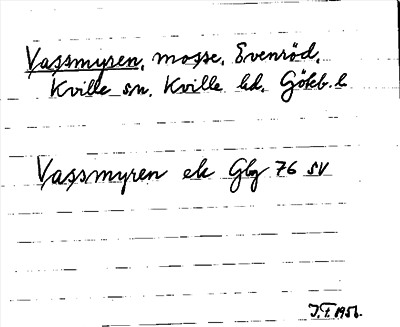 Vassmyren, mosse, Evenröd,
Kville sn, Kville hd, Göteb. l.
Vassmyren ek Gbg 76 SV
J.I. 1956.